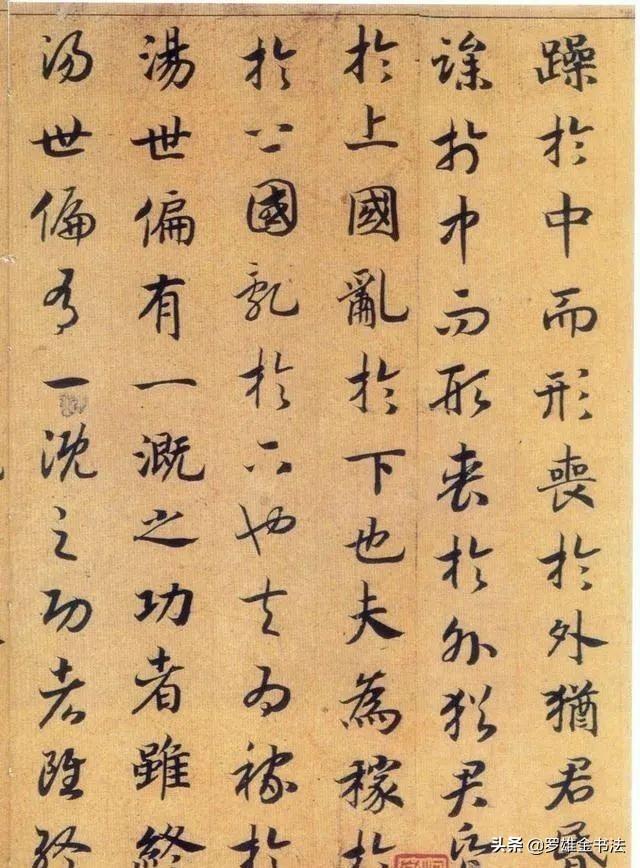 躁於中而形喪於外猶君昏
躁於中而形喪於外猶君昏
於上國亂於下也夫為稼於
於上國亂於下也夫為稼於
湯世偏有一溉之功者雖終
湯世偏有一溉之功者雖終
头条 @罗雄金书法